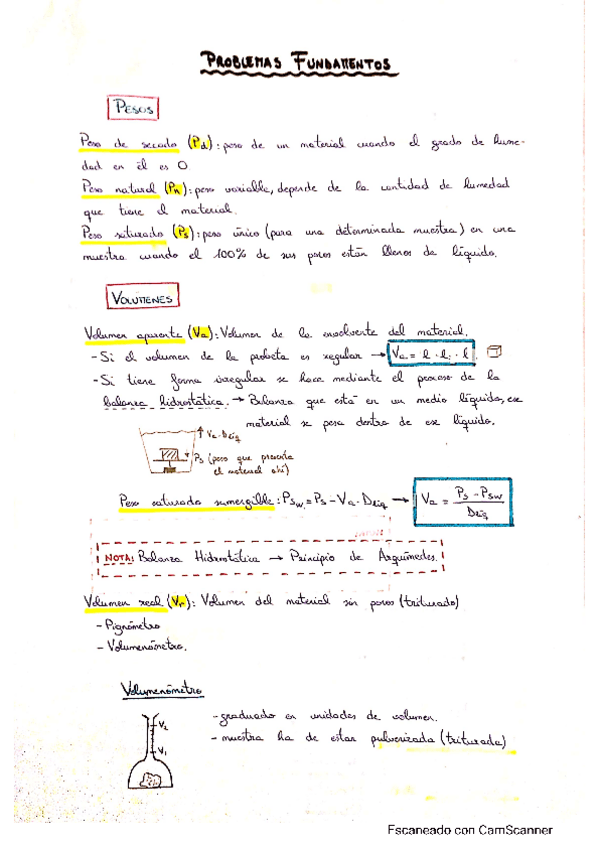 PROBLEMAS FUNDAMENTOS
PESOS
Peso de secado (Pd): peso de un material cuando el grado de hume-
dad en él es 0
Peso natural (Pn): peso variable, depende de la cantidad de humedad
que tiene el material.
Peso saturado (Ps): peso único (para una determinada muestra) en una
muestra cuando el 100% de sus poros están llenos de líquido.
VOLÚMENES
Volumen aparente (Va): Volumen de la envolvente del material.
- Si el volumen de la probeta es regular → Va = l · l · l
- Si tiene forma irregular se hace mediante el proceso de la
balanza hidrostática. → Balanza que está en un medio líquido, ese
material se pesa dentro de ese líquido.
Va · Dliq
Ps (peso que tendría
el material ahí)
Peso saturado sumergible: Psw = Ps - Va · Dliq → Va = Ps - Psw / Dliq
NOTA: Balanza Hidrostática → Principio de Arquímedes.
Volumen real (Vr): Volumen del material sin poros (triturado)
- Pignómetro
- Volumenómetro.
Volumenómetro
- graduado en unidades de volumen.
- muestra ha de estar pulverizada (triturada)
V2
V1
Escaneado con CamScanner